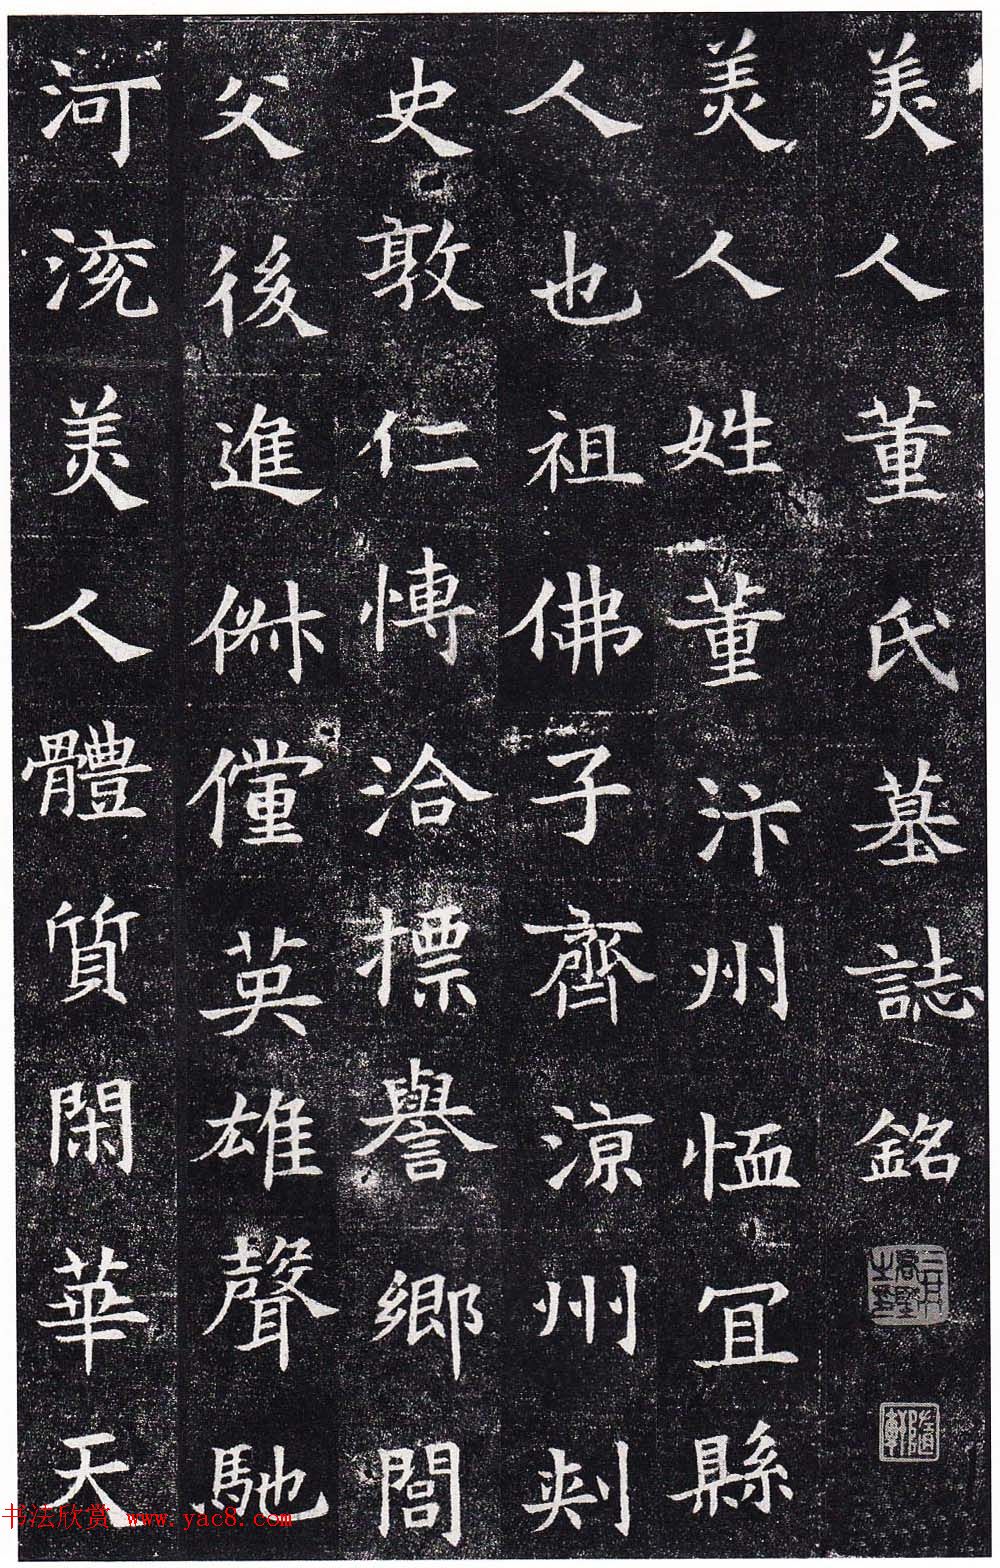 美人董氏墓誌銘
美人姓董汴州恤冝縣
人也祖佛子齊涼州刾
史敦仁慱洽摽譽鄉閭
父後進俶儻英雄聲馳
河流美人體質閑華天
书法欣赏 www.yac8.com